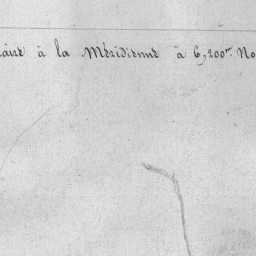 aire à la Méridienne à 6,200m. No